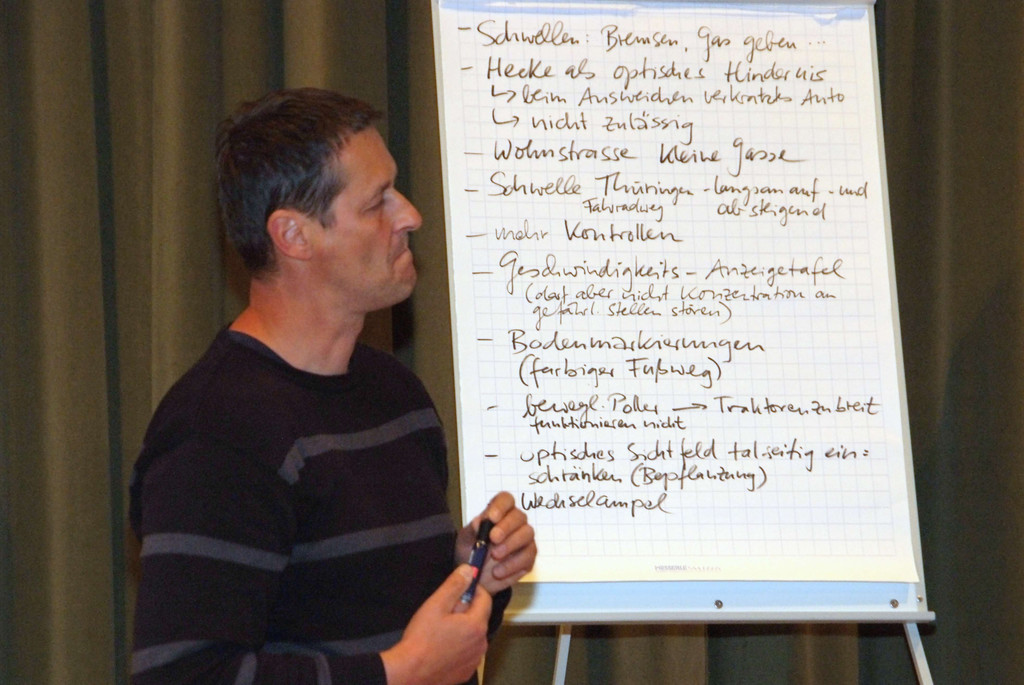 - Schwellen: Bremsen, Gas geben ...
- Hecke als optisches Hindernis
↳ beim Ausweichen verkratztes Auto
↳ nicht zulässig
- Wohnstrasse kleine Gasse
- Schwelle Thüringen - langsam auf - und
Fahrradweg absteigend
- mehr Kontrollen
- Geschwindigkeits - Anzeigetafel
(darf aber nicht Konzentration an
gefährl. Stellen stören)
- Bodenmarkierungen
(farbiger Fußweg)
- bewegl. Poller → Traktoren zu breit
funktionieren nicht
- optisches Sichtfeld talseitig ein=
schränken (Bepflanzung)
Wechselampel